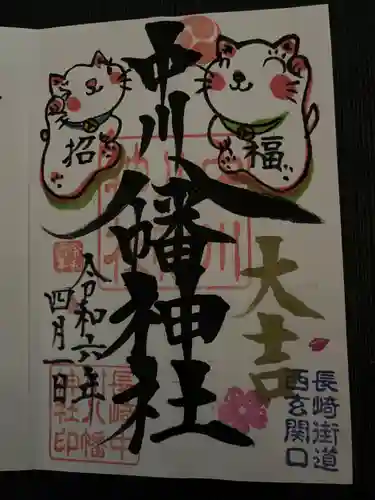 長崎街道
西玄関口
大吉
福
招
中川八幡神社
令和六年
四月一日
長崎中
川八幡
神社印